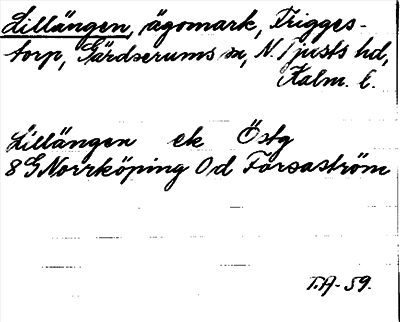 Lillängen, ägomark, Frigges-
torp, Gärdserums sn, N. Tjusts hd,
Kalm. l.
Lillängen ek Östg
8G Norrköping 0d Forsaström
T.A-59.